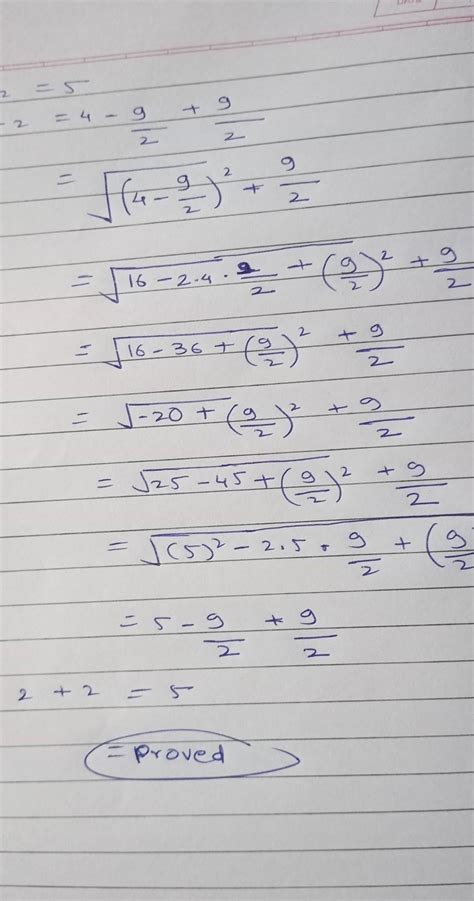 2 = 5
- 2 = 4 - 9/2 + 9/2
= √(4 - 9/2)² + 9/2
= √16 - 2·4·9/2 + (9/2)² + 9/2
= √16 - 36 + (9/2)² + 9/2
= √-20 + (9/2)² + 9/2
= √25 - 45 + (9/2)² + 9/2
= √(5)² - 2·5·9/2 + (9/2
= 5 - 9/2 + 9/2
2 + 2 = 5
= Proved